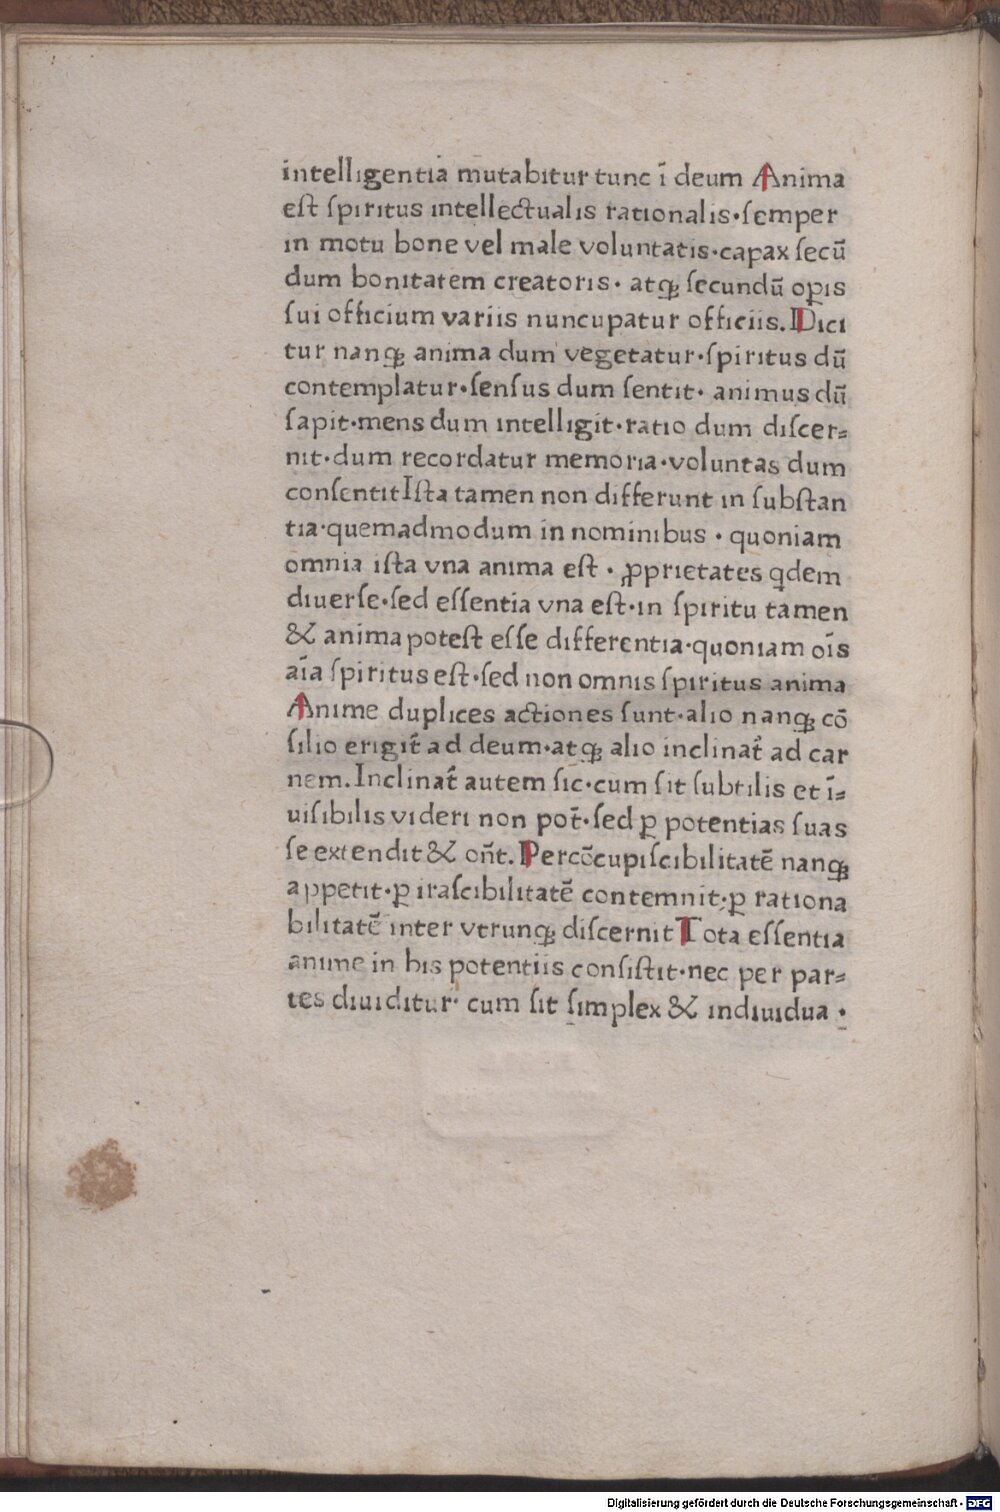 intelligentia mutabitur tunc ī deum Anima
eſt ſpiritus intellectualis rationalis·ſemper
in motu bone vel male voluntatis·capax ſecū
dum bonitatem creatoris· atqꝫ ſecundū oꝑis
ſui officium variis nuncupatur officiis.Dici
tur nanqꝫ anima dum vegetatur·ſpiritus dū
contemplatur·ſenſus dum ſentit· animus dū
ſapit·mens dum intelligit·ratio dum diſcer⸗
nit·dum recordatur memoria·voluntas dum
conſentit Iſta tamen non differunt in ſubſtan
tia·quemadmodum in nominibus · quoniam
omnia iſta vna anima eſt · ꝓprietates qdem
diuerſe·ſed eſſentia vna eſt·in ſpiritu tamen
& anima poteſt eſſe differentia·quoniam oīs
aīa ſpiritus eſt·ſed non omnis ſpiritus anima
Anime duplices actiones ſunt·alio nanqꝫ cō
ſilio erigit̄ ad deum·atqꝫ alio inclinat̄ ad car
nem.Inclinat̄ autem ſic·cum ſit ſubtilis et ī⸗
uiſibilis videri non pot̄·ſed ꝑ potentias ſuas
ſe extendit & oñt. Percōcupiſcibilitatē nanqꝫ
appetit·ꝑ iraſcibilitatē contemnit·ꝑ rationa
bilitatē inter vtrunqꝫ diſcernit Tota eſſentia
anime in his potentiis conſiſtit·nec per par⸗
tes diuiditur· cum ſit ſimplex & indiuidua ·
Digitalisierung gefördert durch die Deutsche Forschungsgemeinschaft - DFG